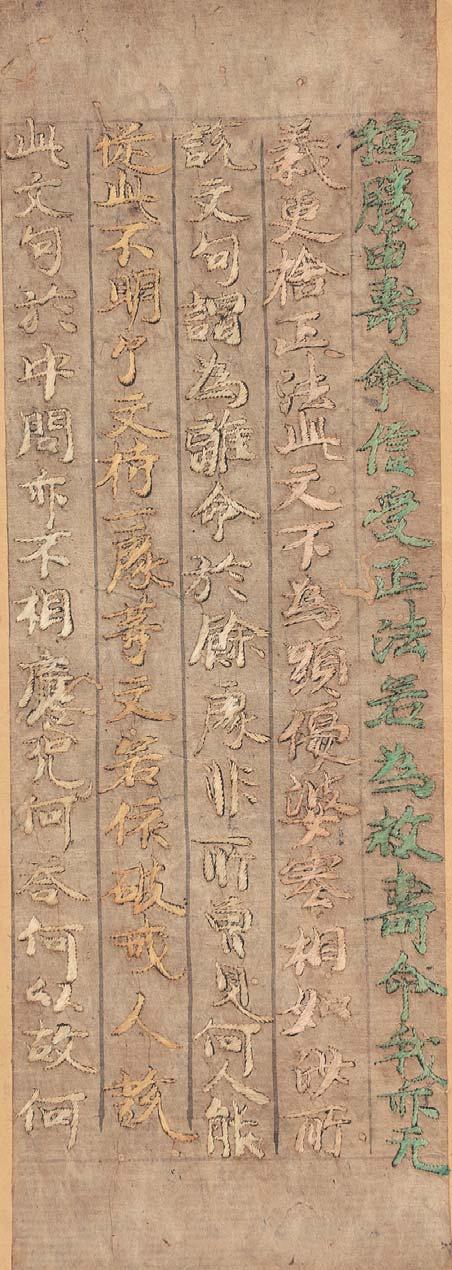 勝由壽命信受正法若為救壽命我亦无
義更捨正法此文不為顯優婆塞相如汝所
說文句謂為離命於餘處非所曾見何人能
從此不明了文一處等文若依破戒人說
此文句於中間亦不相應况何答何以故何